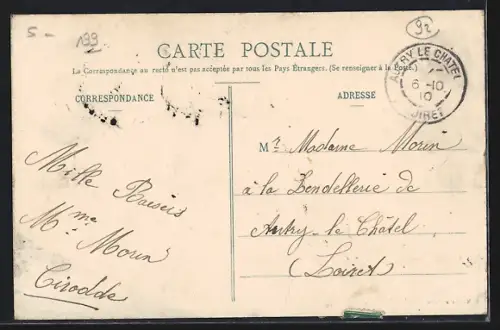 5 -
199
92
CARTE POSTALE
La Correspondance au recto n'est pas acceptée par tous les Pays Étrangers. (Se renseigner à la Poste.)
CORRESPONDANCE
ADRESSE
AUTRY LE CHATEL
6-10
10
LOIRET
Mille Baisers
Mme Morin
Cirodde
Mr Madame Morin
à la Bondellerie de
Autry-le-Châtel
(Loiret)